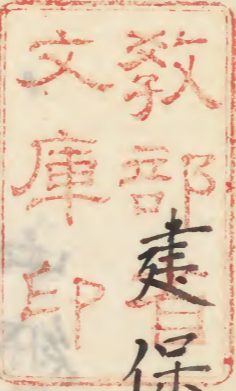 教部省
文庫印
建保